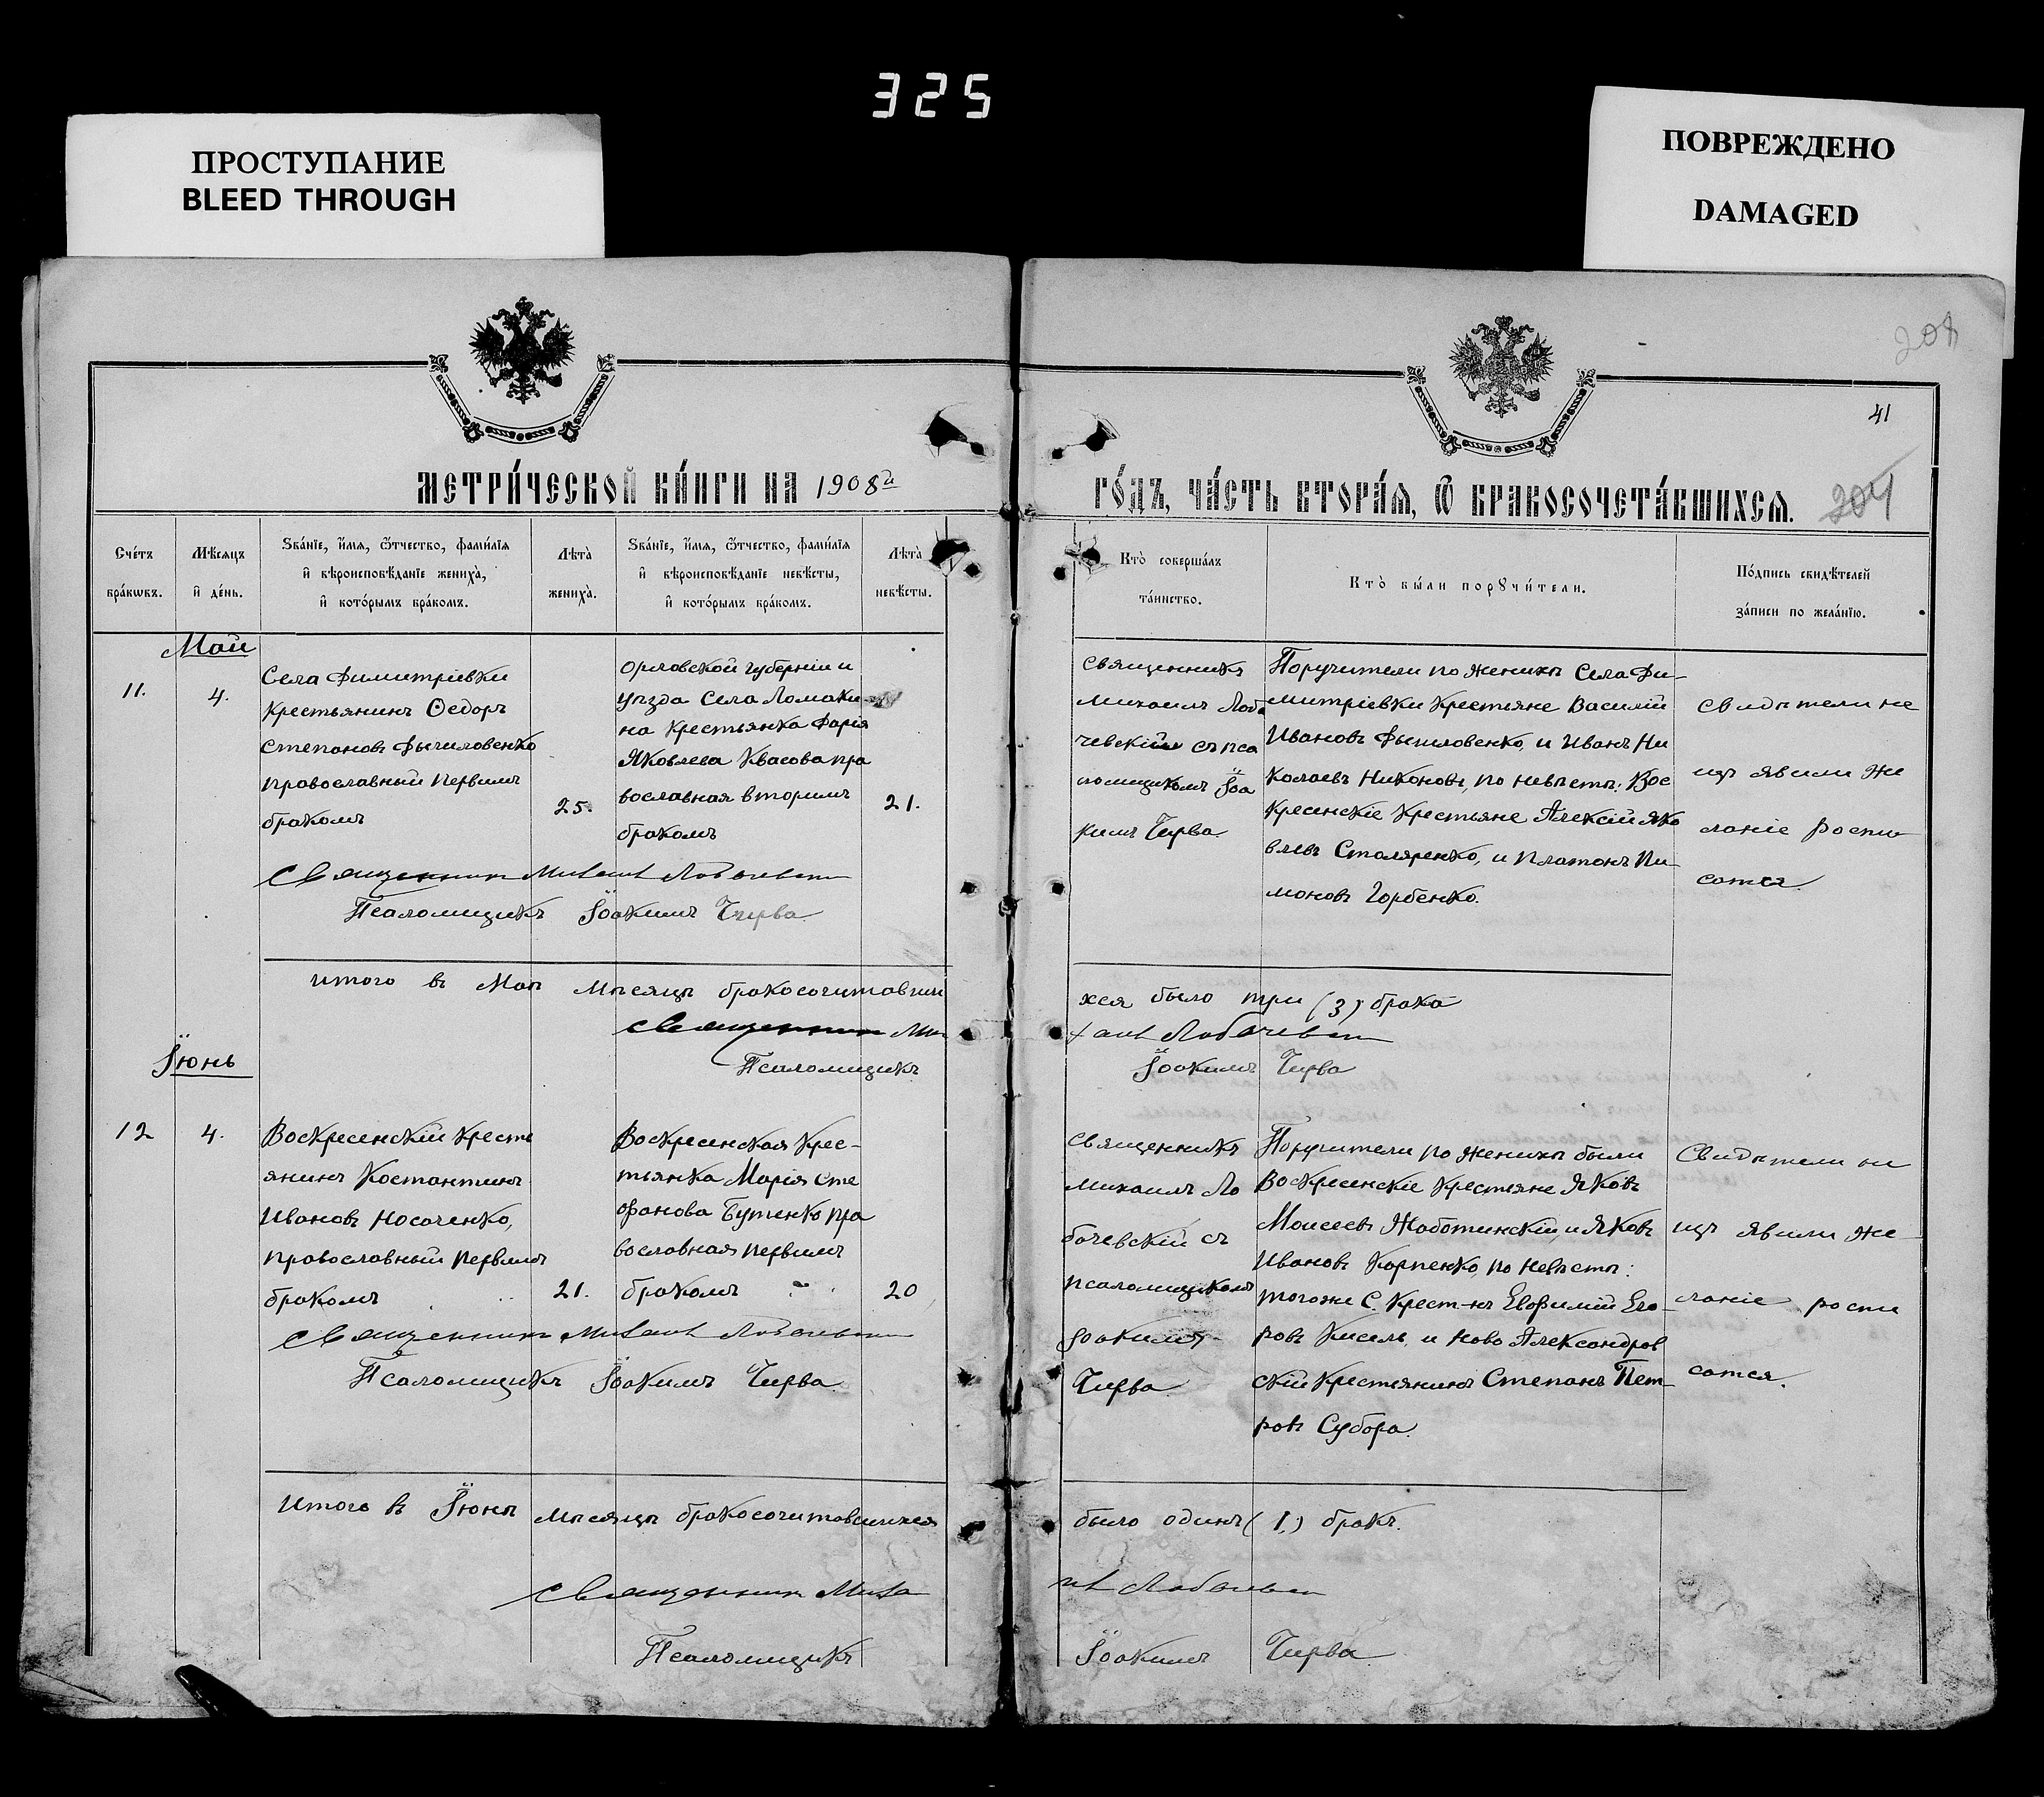 325
ПРОСТУПАНИЕ
BLEED THROUGH
ПОВРЕЖДЕНО
DAMAGED
208
41
МЕТРИ́ЧЕСКОЙ КНИ́ГИ НА 1908й
ГО́ДЪ, ЧА́СТЬ ВТОРА́Ѧ, Ѽ БРАКОСОЧЕТА́ВШИХСѦ. 204
Сче́тъ бра́кѡвъ.
Мѣ́сяцъ и҆ де́нь.
Ѕва́нїе, и҆́мѧ, ѻ҆́тчество, фами́лїѧ и҆ вѣроисповѣ́данїе жениха̀, и҆ кото́рымъ бра́комъ.
Лѣ́та̀ жениха̀.
Ѕва́нїе, и҆́мѧ, ѻ҆́тчество, фами́лїѧ и҆ вѣроисповѣ́данїе невѣ́сты, и҆ кото́рымъ бра́комъ.
Лѣ́та̀ невѣ́сты.
Кто̀ соверша́лъ та́инство.
Кто̀ бы́ли порꙋчи́тели.
По́дпись свидѣ́телей за́писи по жела́нїю.
Май
11.
4.
Села Димитріевки
Крестьянинъ Ѳедоръ
Степановъ
православный первымъ
бракомъ
25.
Орловской губерніи и
уѣзда Села Ломаки-
на Крестьянка Дарія
Яковлева Квасова пра
вославная вторымъ
бракомъ
21.
Священникъ
Михаилъ Лоба
чевскій съ пса
ломщикомъ Іоа
кимъ Чирва
Поручители по женихѣ Села Ди-
митріевки Крестьяне Василій
Ивановъ и Иванъ Ни
колаевъ Никоновъ, по невѣстѣ: Вос
кресенскіе Крестьяне Алексій Яко
влевъ Столяренко, и Платонъ Пи-
моновъ Горбенко.
Свидѣтели не
изъ явили же
ланіе роспи
сатся.
Священникъ Михаилъ Лобачевскій
Псаломщикъ Іоакимъ Чирва.
итого въ Маѣ Мѣсяцѣ бракосочитавши
хся было три (3) брака
Священникъ Ми
хаилъ Лобачевскій
Псаломщикъ
Іоакимъ Чирва
Іюнь
12
4.
Воскресенскій Кресть
янинъ Костантинъ
Ивановъ Носаченко,
православный первымъ
бракомъ
21.
Воскресенская Крес-
тьянка Марія Сте
фанова Бутенко пра
вославная первымъ
бракомъ
20
Священникъ
Михаилъ Ло
бачевскій съ
псаломщикомъ
Іоакимъ
Чирва
Поручители по женихѣ были
Воскресенскіе Крестьяне Яковъ
Моисеевъ Жаботинскій, и Яковъ
Ивановъ Карпенко, по невѣстѣ:
тогоже С. Крест-нъ Евфимій Его-
ровъ Кисель, и Ново Александров
скій Крестьянинъ Степанъ Пет-
ровъ Субора.
Свидѣтели не
изъ явили же
ланіе роспи
сатся.
Священникъ Михаилъ Лобачевскій
Псаломщикъ Іоакимъ Чирва.
Итого въ Іюнѣ мѣсяцѣ бракосочитавшихся
было одинъ (1.) бракъ.
Священникъ Миха
илъ Лобачевскій
Псаломщикъ
Іоакимъ Чирва.